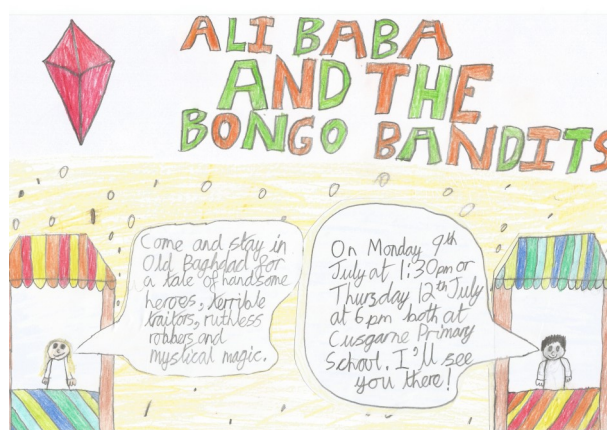 ALI BABA
AND THE
BONGO BANDITS
Come and stay in
Old Baghdad for
a tale of handsome
heroes, terrible
traitors, ruthless
robbers and
mystical magic.
On Monday 9th
July at 1:30pm or
Thursday 12th July
at 6pm both at
Cusgarne Primary
School. I'll see
you there!